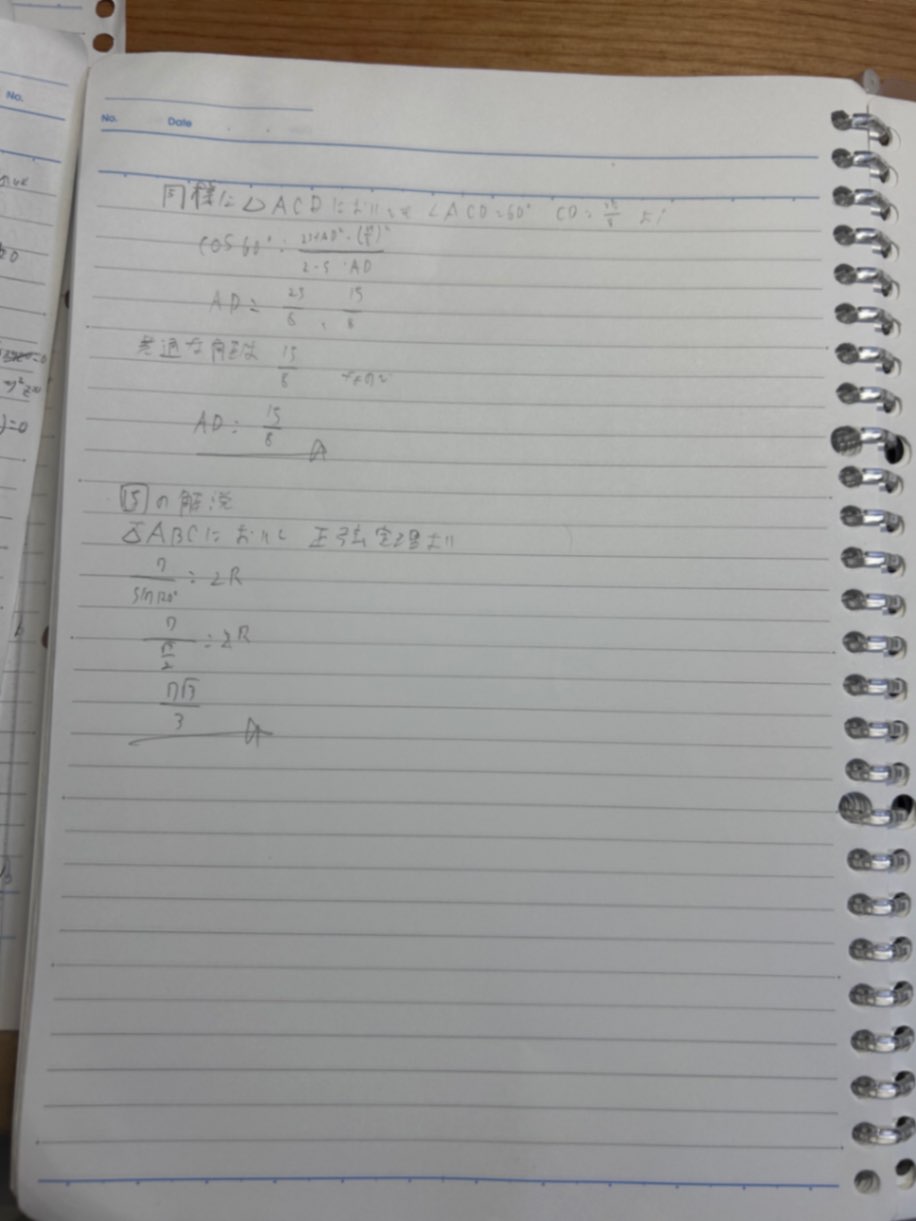 No.
No. Date
同様に △ACDにおいて ∠ACD=60° CD=35/8 より
cos60°= (25+AD²-(35/8)²)/(2・5・AD)
AD= 25/8 , 15/8
共通な解は 15/8 なので
AD= 15/8
15 の解説
△ABCにおいて 正弦定理より
7/sin120° = 2R
7/(√3/2) = 2R
7√3/3